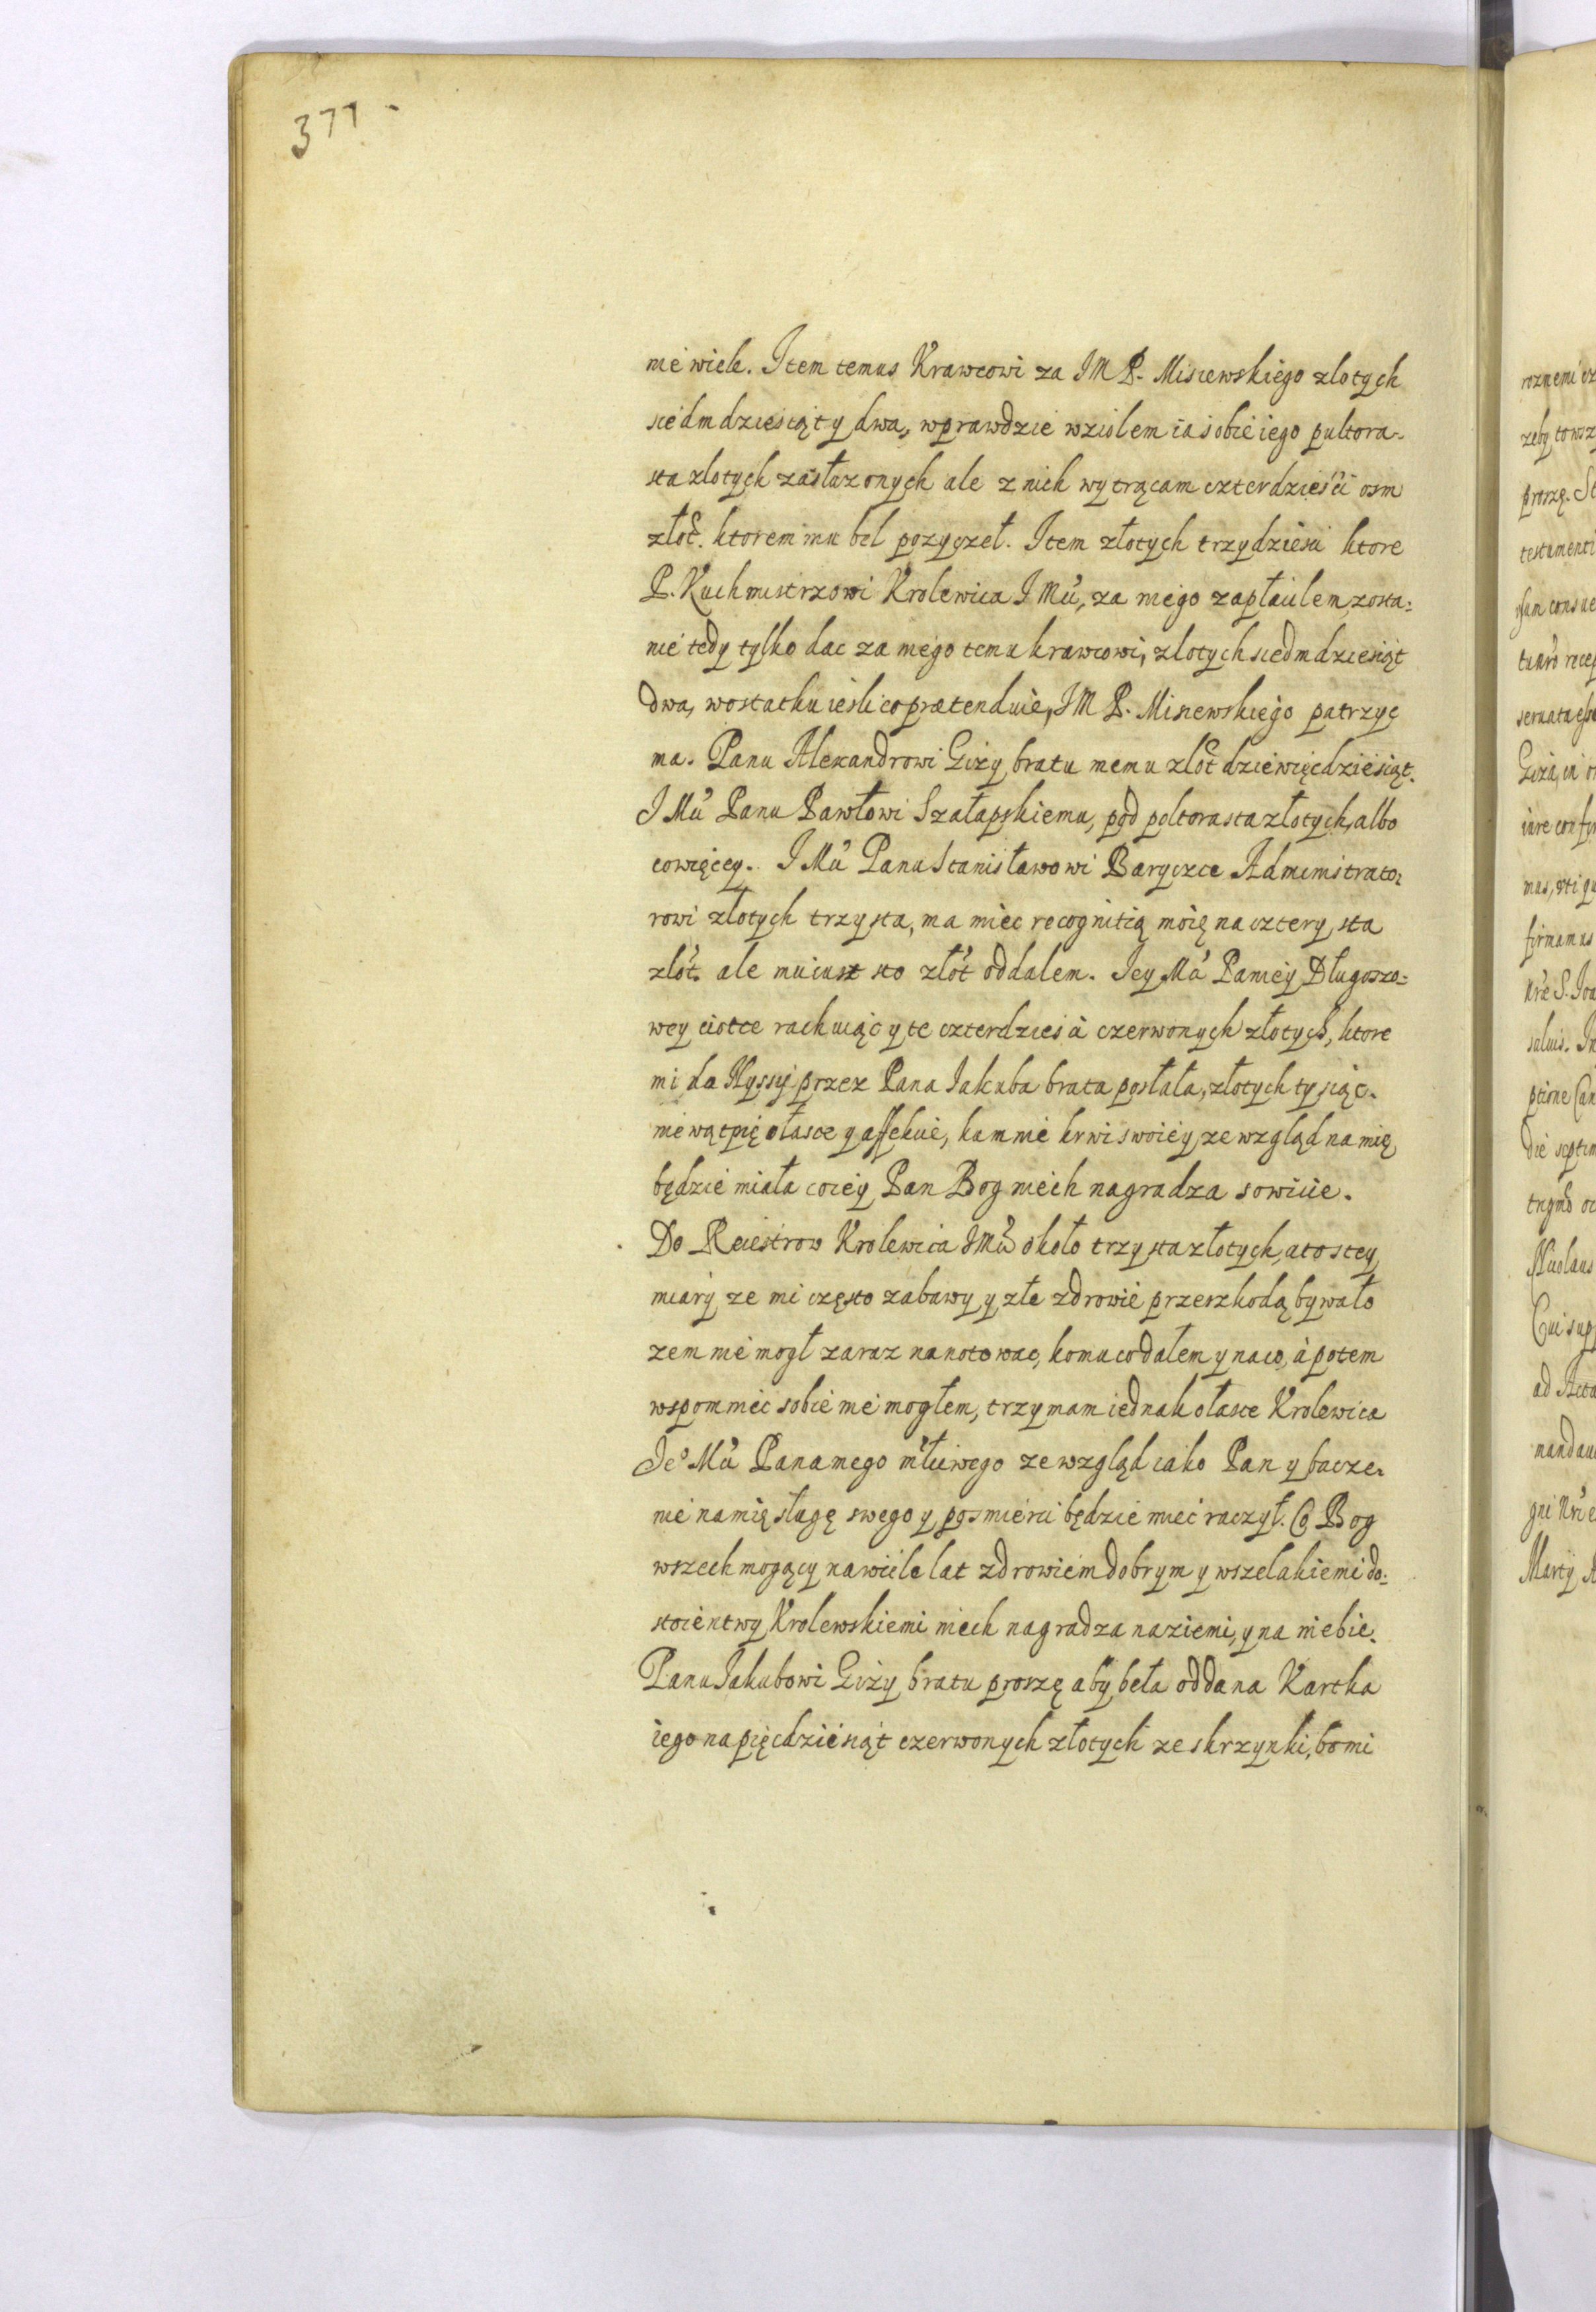 377
nie wiele. Item temus Krawcowi za JM P. Misiewskiego zlotych
siedmdziesiąt y dwa, wprawdzie wziolem ia sobie iego pultora-
sta zlotych zasłuzonych ale z nich wytrącam czterdzieści osm
złot. ktorem mu bel pozyczeł. Item złotych trzydziesci ktore
P. Kuchmistrzowi Krolewica J Mci, za niego zapłacilem, zosta=
nie tedy tylko dac za niego temu krawcowi, zlotych siedmdziesiąt
dwa, wostatku iesli co praetenduie, JM P. Misiewskiego patrzyc
ma. Panu Alexandrowi Gizy bratu memu zlot dziewięcdziesiąt.
J Mci Panu Pawłowi Szałapskiemu, pod poltorasta złotych, albo
cowięcey. J Mci Panu Stanisławowi Baryczce Administrato=
rowi złotych trzysta, ma miec recognitią moię na cztery sta
złot. ale mu iusz sto złot oddalem. Jey Mci Paniey Długoszo=
wey ciotce rachuiąc y te czterdziesci czerwonych złotych, ktore
mi do Nyssy przez Pana Jakuba brata posłała, złotych tysiąc.
nie wątpię o łasce y affekcie, kamnie krwi swoiey ze wzgląd na mię
będzie miała co iey Pan Bog niech nagradza sowicie.
Do Reiestrow Krolewica JMci około trzysta złotych, a to stey
miary ze mi często zabawy y złe zdrowie przeszkodą bywało
zem nie mogł zaraz nanotowac, komu co dałem y naco, à potem
wspomniec sobie nie mogłem, trzymam iednak o łasce Krolewica
Je° Mci Pana mego młciwego ze wzgląd iako Pan y bacze=
nie na mię sługę swego y po smierci będzie miec raczył. Co Bog
wszechmogący na wiele lat zdrowiem dobrym y wszelakiemi do=
stoienstwy Krolewskiemi niech nagradza na ziemi, y na niebie.
Panu Jakubowi Gizy bratu proszę aby beła oddana Kartka
iego na pięcdziesiąt czerwonych złotych ze skrzynki, bo mi